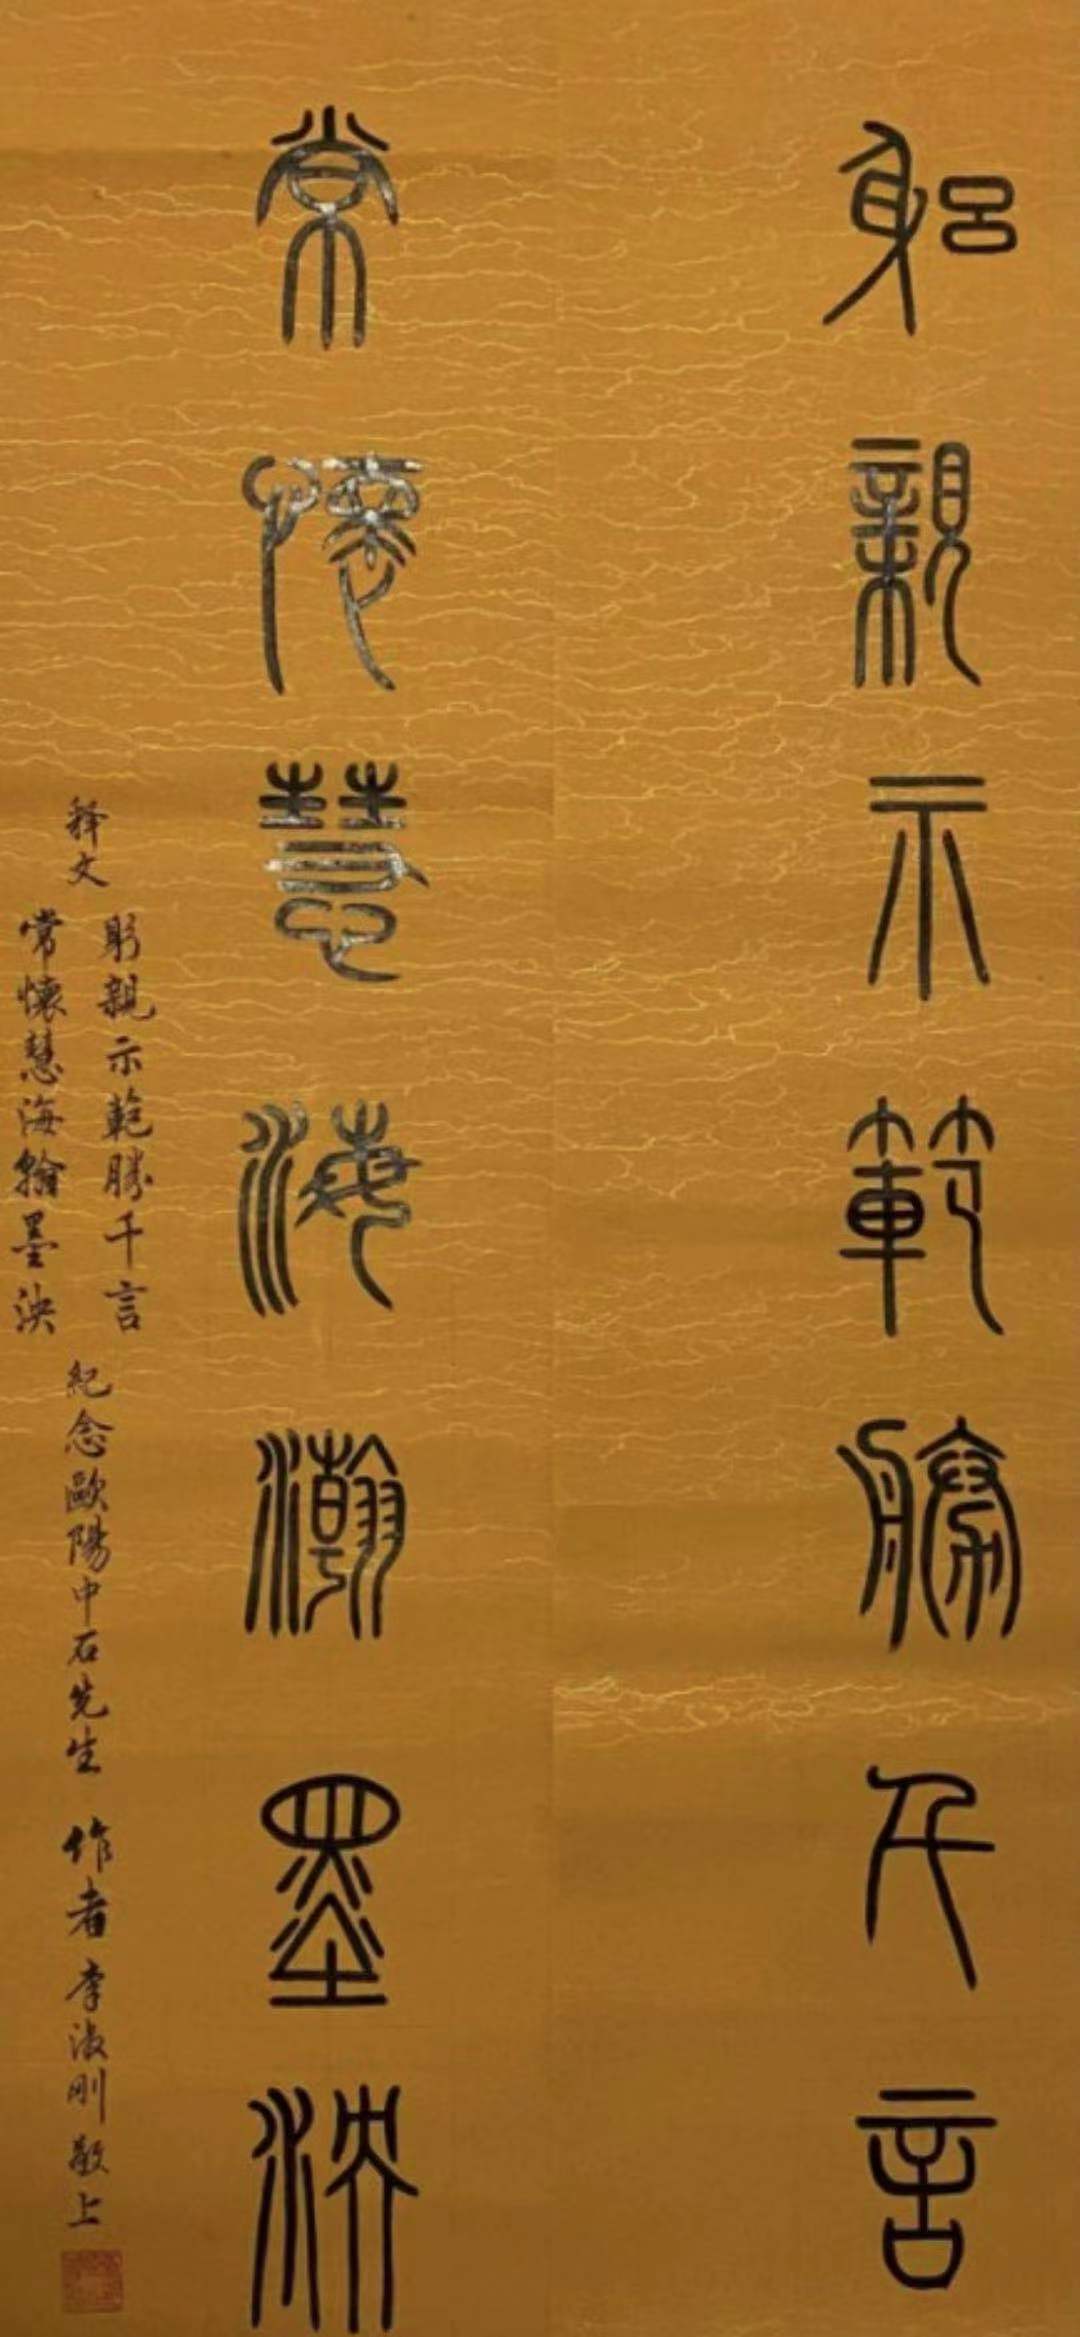 躬親示範勝千言
常懷慧海瀚墨泱
释文
躬親示範勝千言
常懷慧海翰墨泱
紀念歐陽中石先生
作者李淑刚敬上